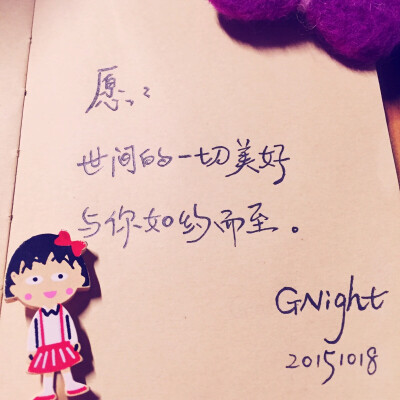 愿:
世间的一切美好
与你如约而至。
GNight
20151018